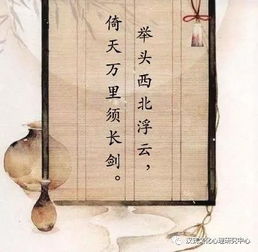 举头西北浮云，
倚天万里须长剑。
汉文化心理研究中心